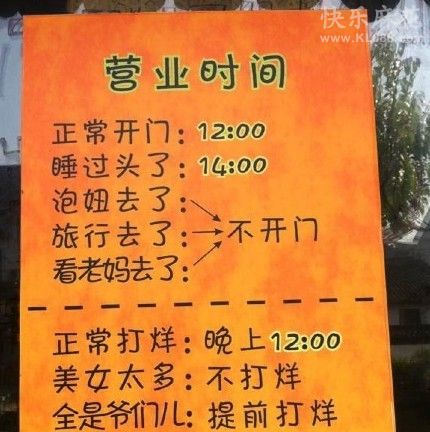 快乐麻花
营业时间
正常开门：12:00
睡过头了：14:00
泡妞去了：
旅行去了：不开门
看老妈去了：
正常打烊：晚上12:00
美女太多：不打烊
全是爷们儿：提前打烊